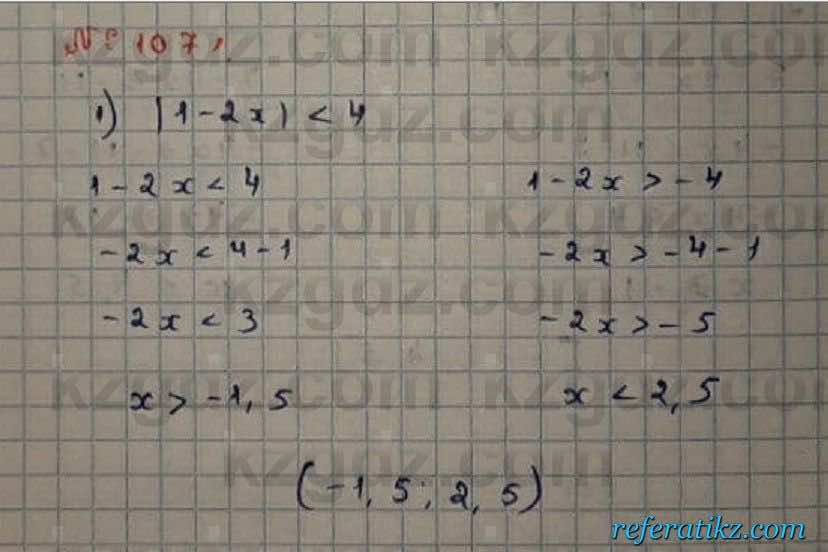 № 107.
1) |1-2x| < 4
1-2x < 4 1-2x > -4
-2x < 4-1 -2x > -4-1
-2x < 3 -2x > -5
x > -1,5 x < 2,5
(-1,5; 2,5)
kzgdz.com
referatikz.com